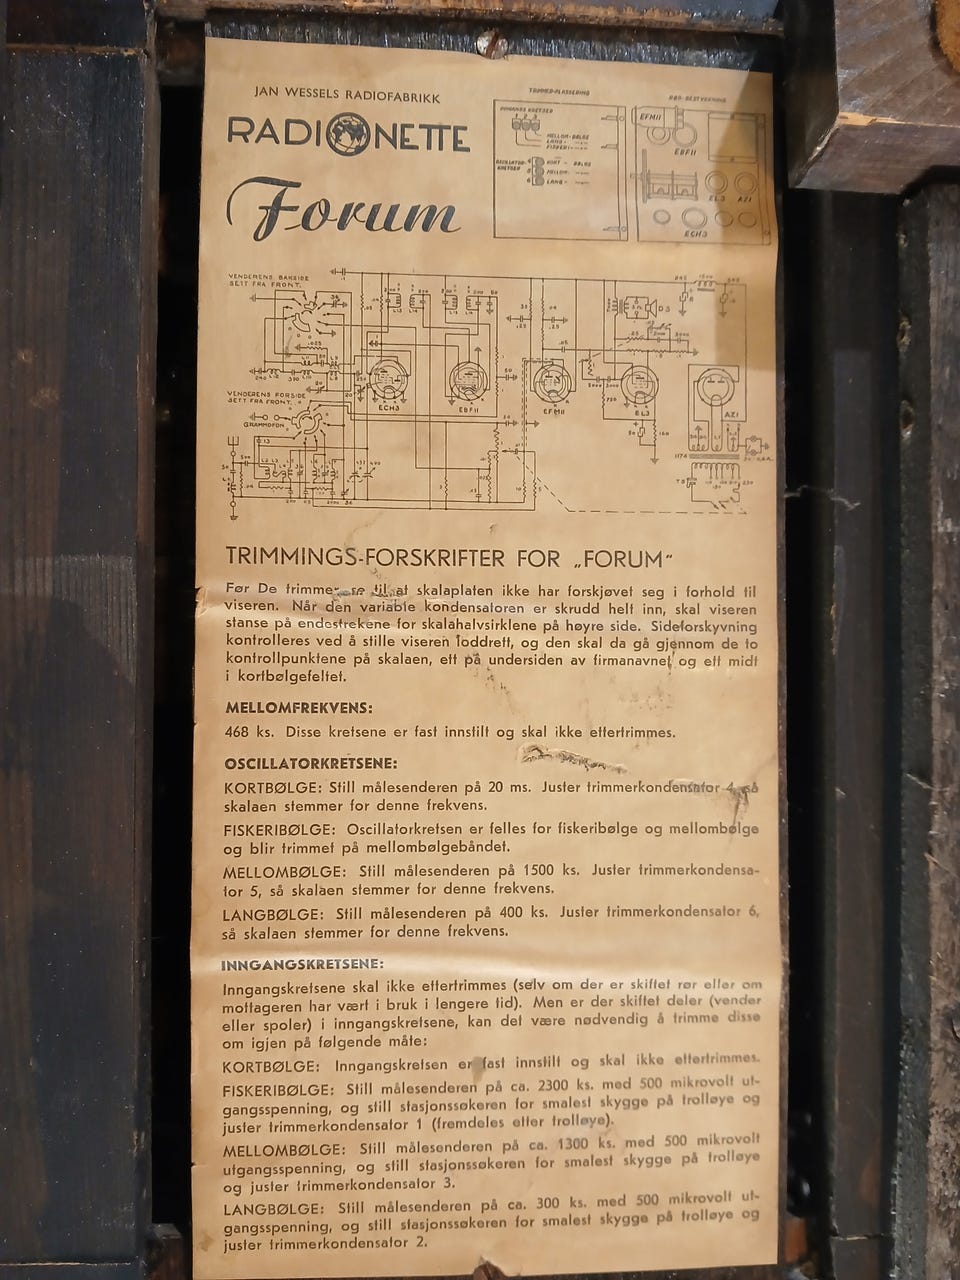 JAN WESSELS RADIOFABRIKK
RADIONETTE
Forum
TRIMMER-PLASSERING
INNGANGS KRETSER
1 2 3
MELLOM-BØLGE
LANG-
FISKERI-
OSCILLATOR-
KRETSER
4 KORT - BØLGE
5 MELLOM-
6 LANG -
RØR-BESTYKNING
EFM11
EBF11
EL3 AZ1
ECH3
VENDERENS BAKSIDE
SETT FRA FRONT.
VENDERENS FORSIDE
SETT FRA FRONT.
GRAMMOFON
ECH3
EBF11
EFM11
EL3
AZ1
TRIMMINGS-FORSKRIFTER FOR „FORUM“
Før De trimmer, se til at skalaplaten ikke har forskjøvet seg i forhold til
viseren. Når den variable kondensatoren er skrudd helt inn, skal viseren
stanse på endestrekene for skalahalvsirklene på høyre side. Sideforskyvning
kontrolleres ved å stille viseren loddrett, og den skal da gå gjennom de to
kontrollpunktene på skalaen, ett på undersiden av firmanavnet og ett midt
i kortbølgefeltet.
MELLOMFREKVENS:
468 ks. Disse kretsene er fast innstilt og skal ikke ettertrimmes.
OSCILLATORKRETSENE:
KORTBØLGE: Still målesenderen på 20 ms. Juster trimmerkondensator 4, så
skalaen stemmer for denne frekvens.
FISKERIBØLGE: Oscillatorkretsen er felles for fiskeribølge og mellombølge
og blir trimmet på mellombølgebåndet.
MELLOMBØLGE: Still målesenderen på 1500 ks. Juster trimmerkondensa-
tor 5, så skalaen stemmer for denne frekvens.
LANGBØLGE: Still målesenderen på 400 ks. Juster trimmerkondensator 6,
så skalaen stemmer for denne frekvens.
INNGANGSKRETSENE:
Inngangskretsene skal ikke ettertrimmes (selv om der er skiftet rør eller om
mottageren har vært i bruk i lengere tid). Men er der skiftet deler (vender
eller spoler) i inngangskretsene, kan det være nødvendig å trimme disse
om igjen på følgende måte:
KORTBØLGE: Inngangskretsen er fast innstilt og skal ikke ettertrimmes.
FISKERIBØLGE: Still målesenderen på ca. 2300 ks. med 500 mikrovolt ut-
gangsspenning, og still stasjonssøkeren for smalest skygge på trolløye og
juster trimmerkondensator 1 (fremdeles etter trolløye).
MELLOMBØLGE: Still målesenderen på ca. 1300 ks. med 500 mikrovolt
utgangsspenning, og still stasjonssøkeren for smalest skygge på trolløye
og juster trimmerkondensator 3.
LANGBØLGE: Still målesenderen på ca. 300 ks. med 500 mikrovolt ut-
gangsspenning, og still stasjonssøkeren for smalest skygge på trolløye og
juster trimmerkondensator 2.